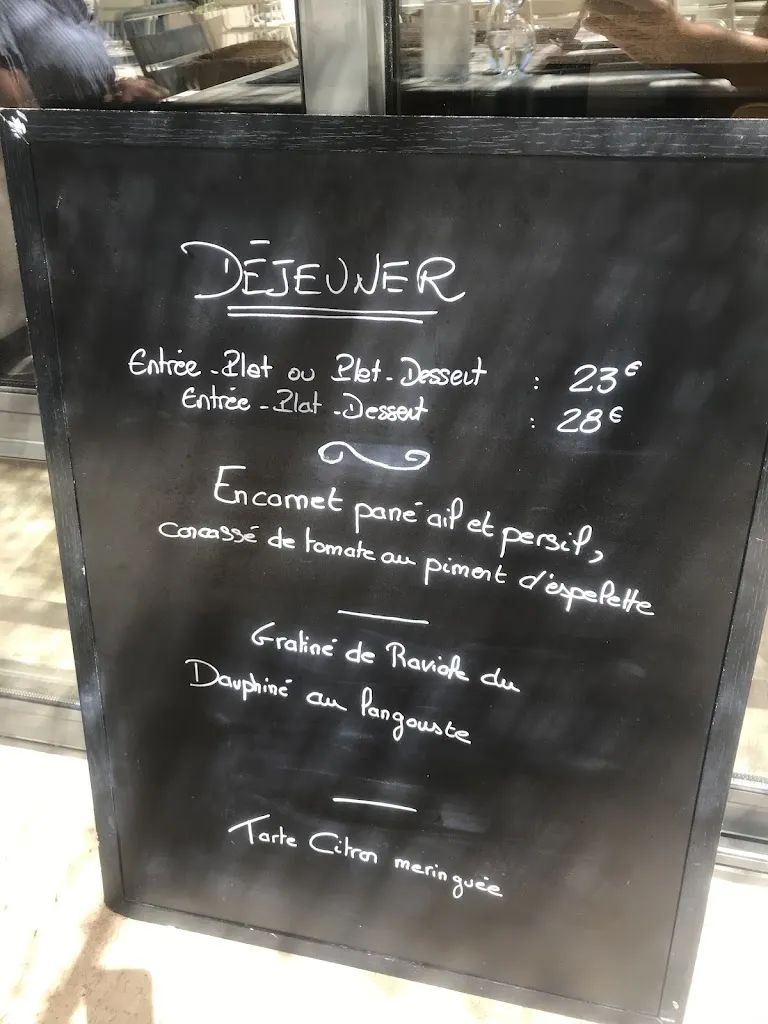 DÉJEUNER
Entrée - Plat ou Plat - Dessert : 23€
Entrée - Plat - Dessert : 28€
Encornet pané ail et persil,
concassé de tomate au piment d'espelette
Gratiné de Raviole du
Dauphiné au langouste
Tarte Citron meringuée